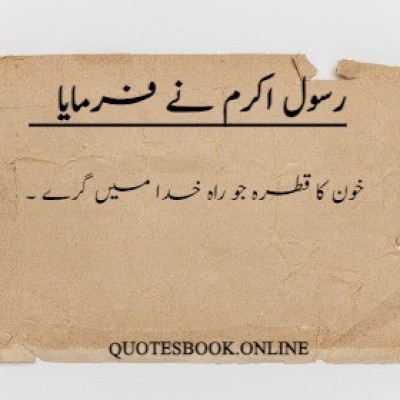 رسول اکرم نے فرمایا
خون کا قطرہ جو راہ خدا میں گرے ۔
QUOTESBOOK.ONLINE